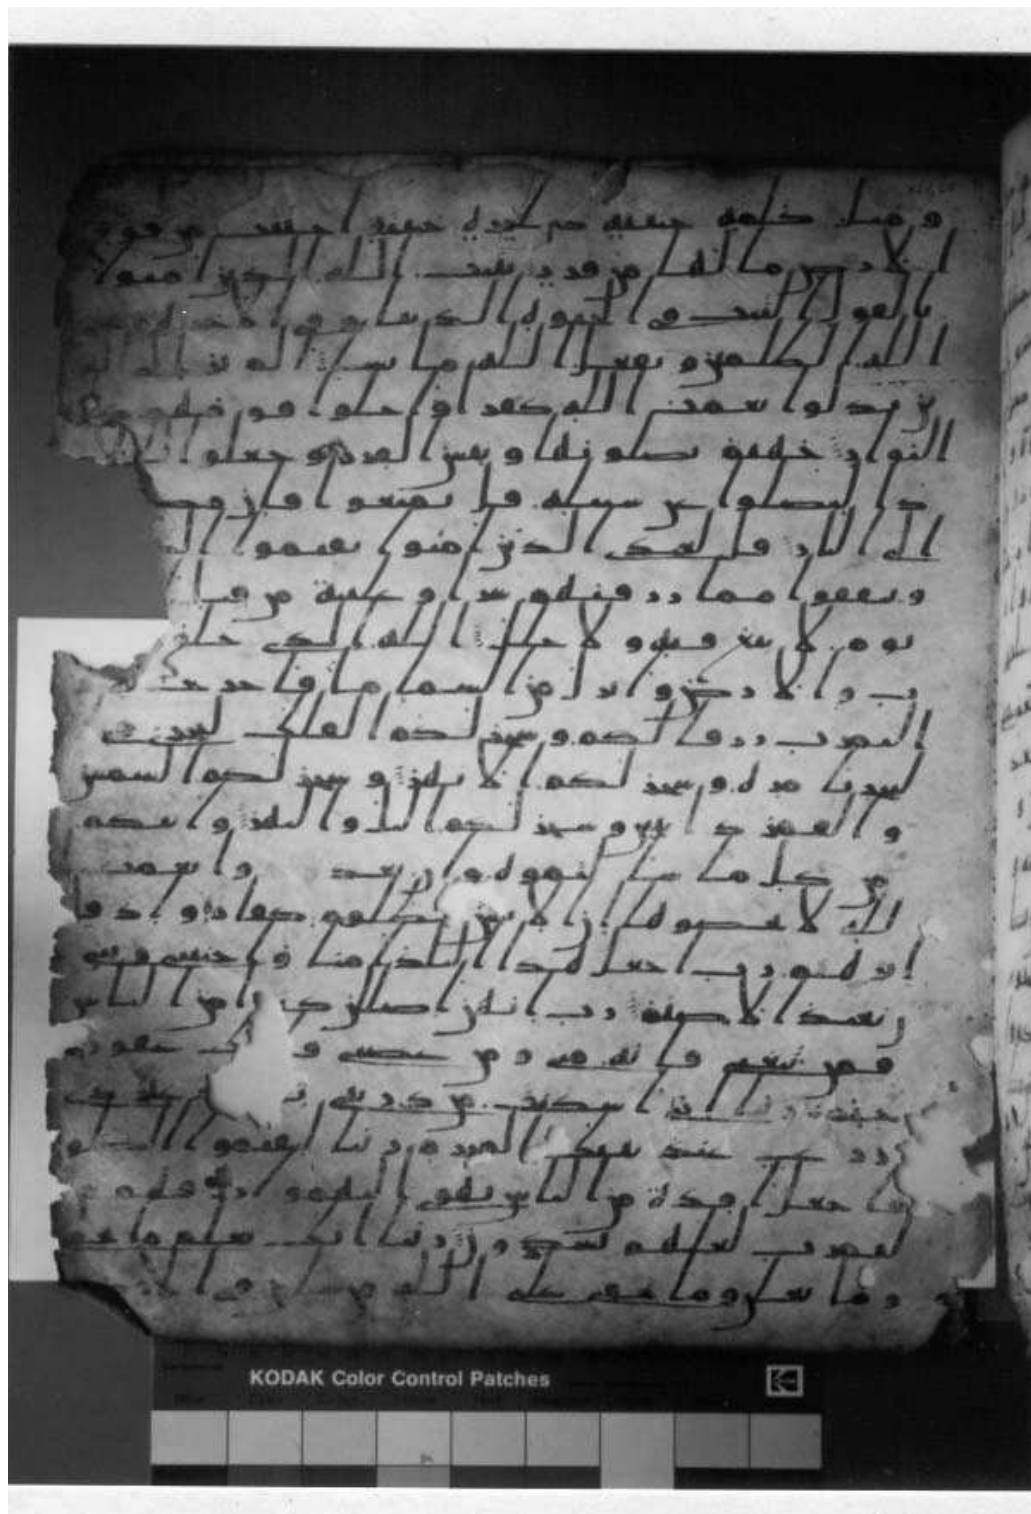 ومثل كلمة خبيثة كشجرة خبيثة اجتثت من فوق
الارض ما لها من قرر يثبت الله الذين امنوا
بالقول الثبت في الحيوة الدنيا وفي الاخرة
الله الظلمين ويفعل الله ما يشا الم تر الى
ين بدلوا نعمت الله كفرا واحلوا قومهم
البوار جهنم يصلونها وبئس القرر وجعلوا
دا ليضلوا عن سبيله قل تمتعوا فان مصـ
الى النار قل لعبدي الذين امنوا يقيموا
وينفقوا مما رزقنهم سرا وعلنية من قبل
يوم لا بيع فيه ولا خلل الله الذي خلق
ت والارض وانزل من السما ما فاخرج
الثمرت رزقا لكم وسخر لكم الفلك لتجري في
البحر بامره وسخر لكم الانهر وسخر لكم الشمس
والقمر دائبين وسخر لكم اليل والنهر واتيكم
من كل ما سالتموه وان تعد وا نعمت
الله لا تحصوها ان الانسن لظلوم كفار واذ قا
ل ابرهيم رب اجعل هذا البلد امنا واجنبني وبني
ان نعبد الاصنم رب انهن اضللن كثيرا من الناس
فمن تبعني فانه مني ومن عصني فانك غفور
ربنا اني اسكنت من ذريتي
زرع عند بيتك المحرم ربنا ليقيموا الصلو
فاجعل افئدة من الناس تهوي اليهم وارزقهم
الثمرت لعلهم يشكرون ربنا انك تعلم ما نخفي
وما نعلن وما يخفى على الله من شي في
KODAK Color Control Patches